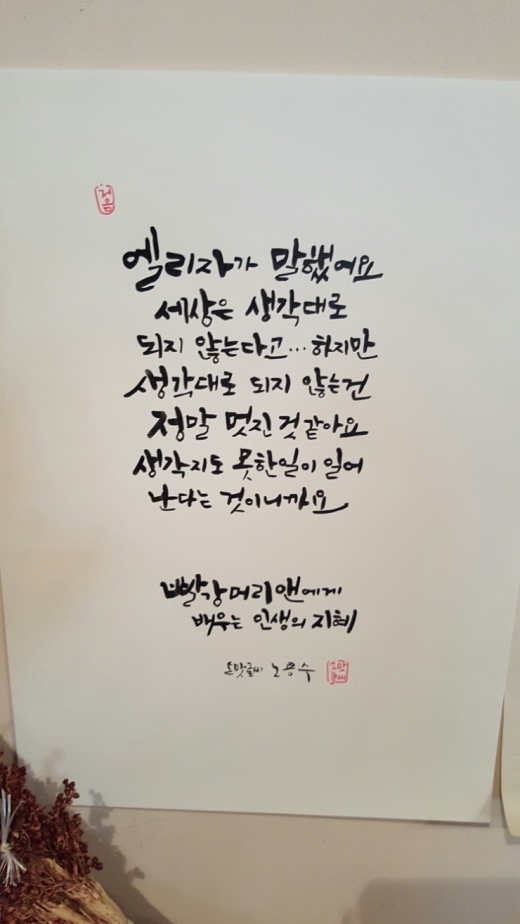 엘리자가 말했어요
세상은 생각대로
되지 않는다고...하지만
생각대로 되지 않는건
정말 멋진 것 같아요
생각지도 못한일이 일어
난다는 것이니까요
빨강머리앤에게
배우는 인생의 지혜
손맛글씨 노용수
손맛
글씨